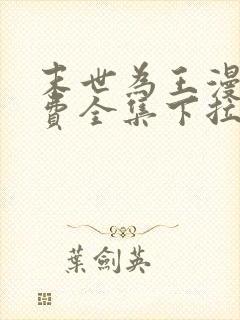 末世為王漫
費全集下拉
葉劍英